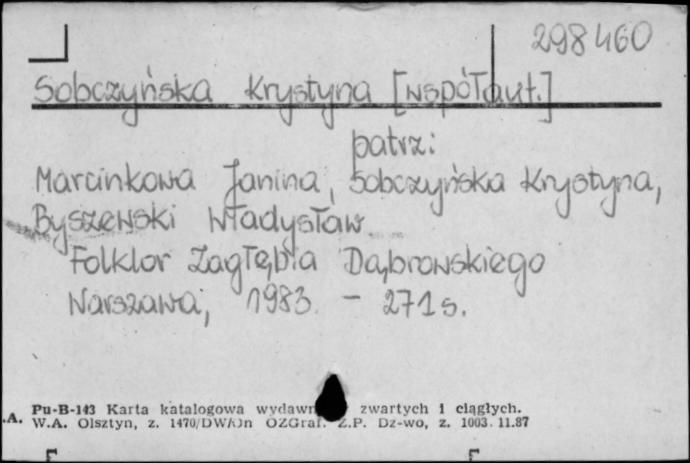 298460
Sobczyńska Krystyna [współaut.]
patrz:
Marcinkowa Janina, Sobczyńska Krystyna,
Byszewski Władysław
Folklor Zagłębia Dąbrowskiego
Warszawa, 1983. - 271 s.
Pu-B-143 Karta katalogowa wydawn zwartych i ciągłych.
.A. W.A. Olsztyn, z. 1470/DW/Dn OZGraf. Z.P. Dz-wo, z. 1003. 11.87